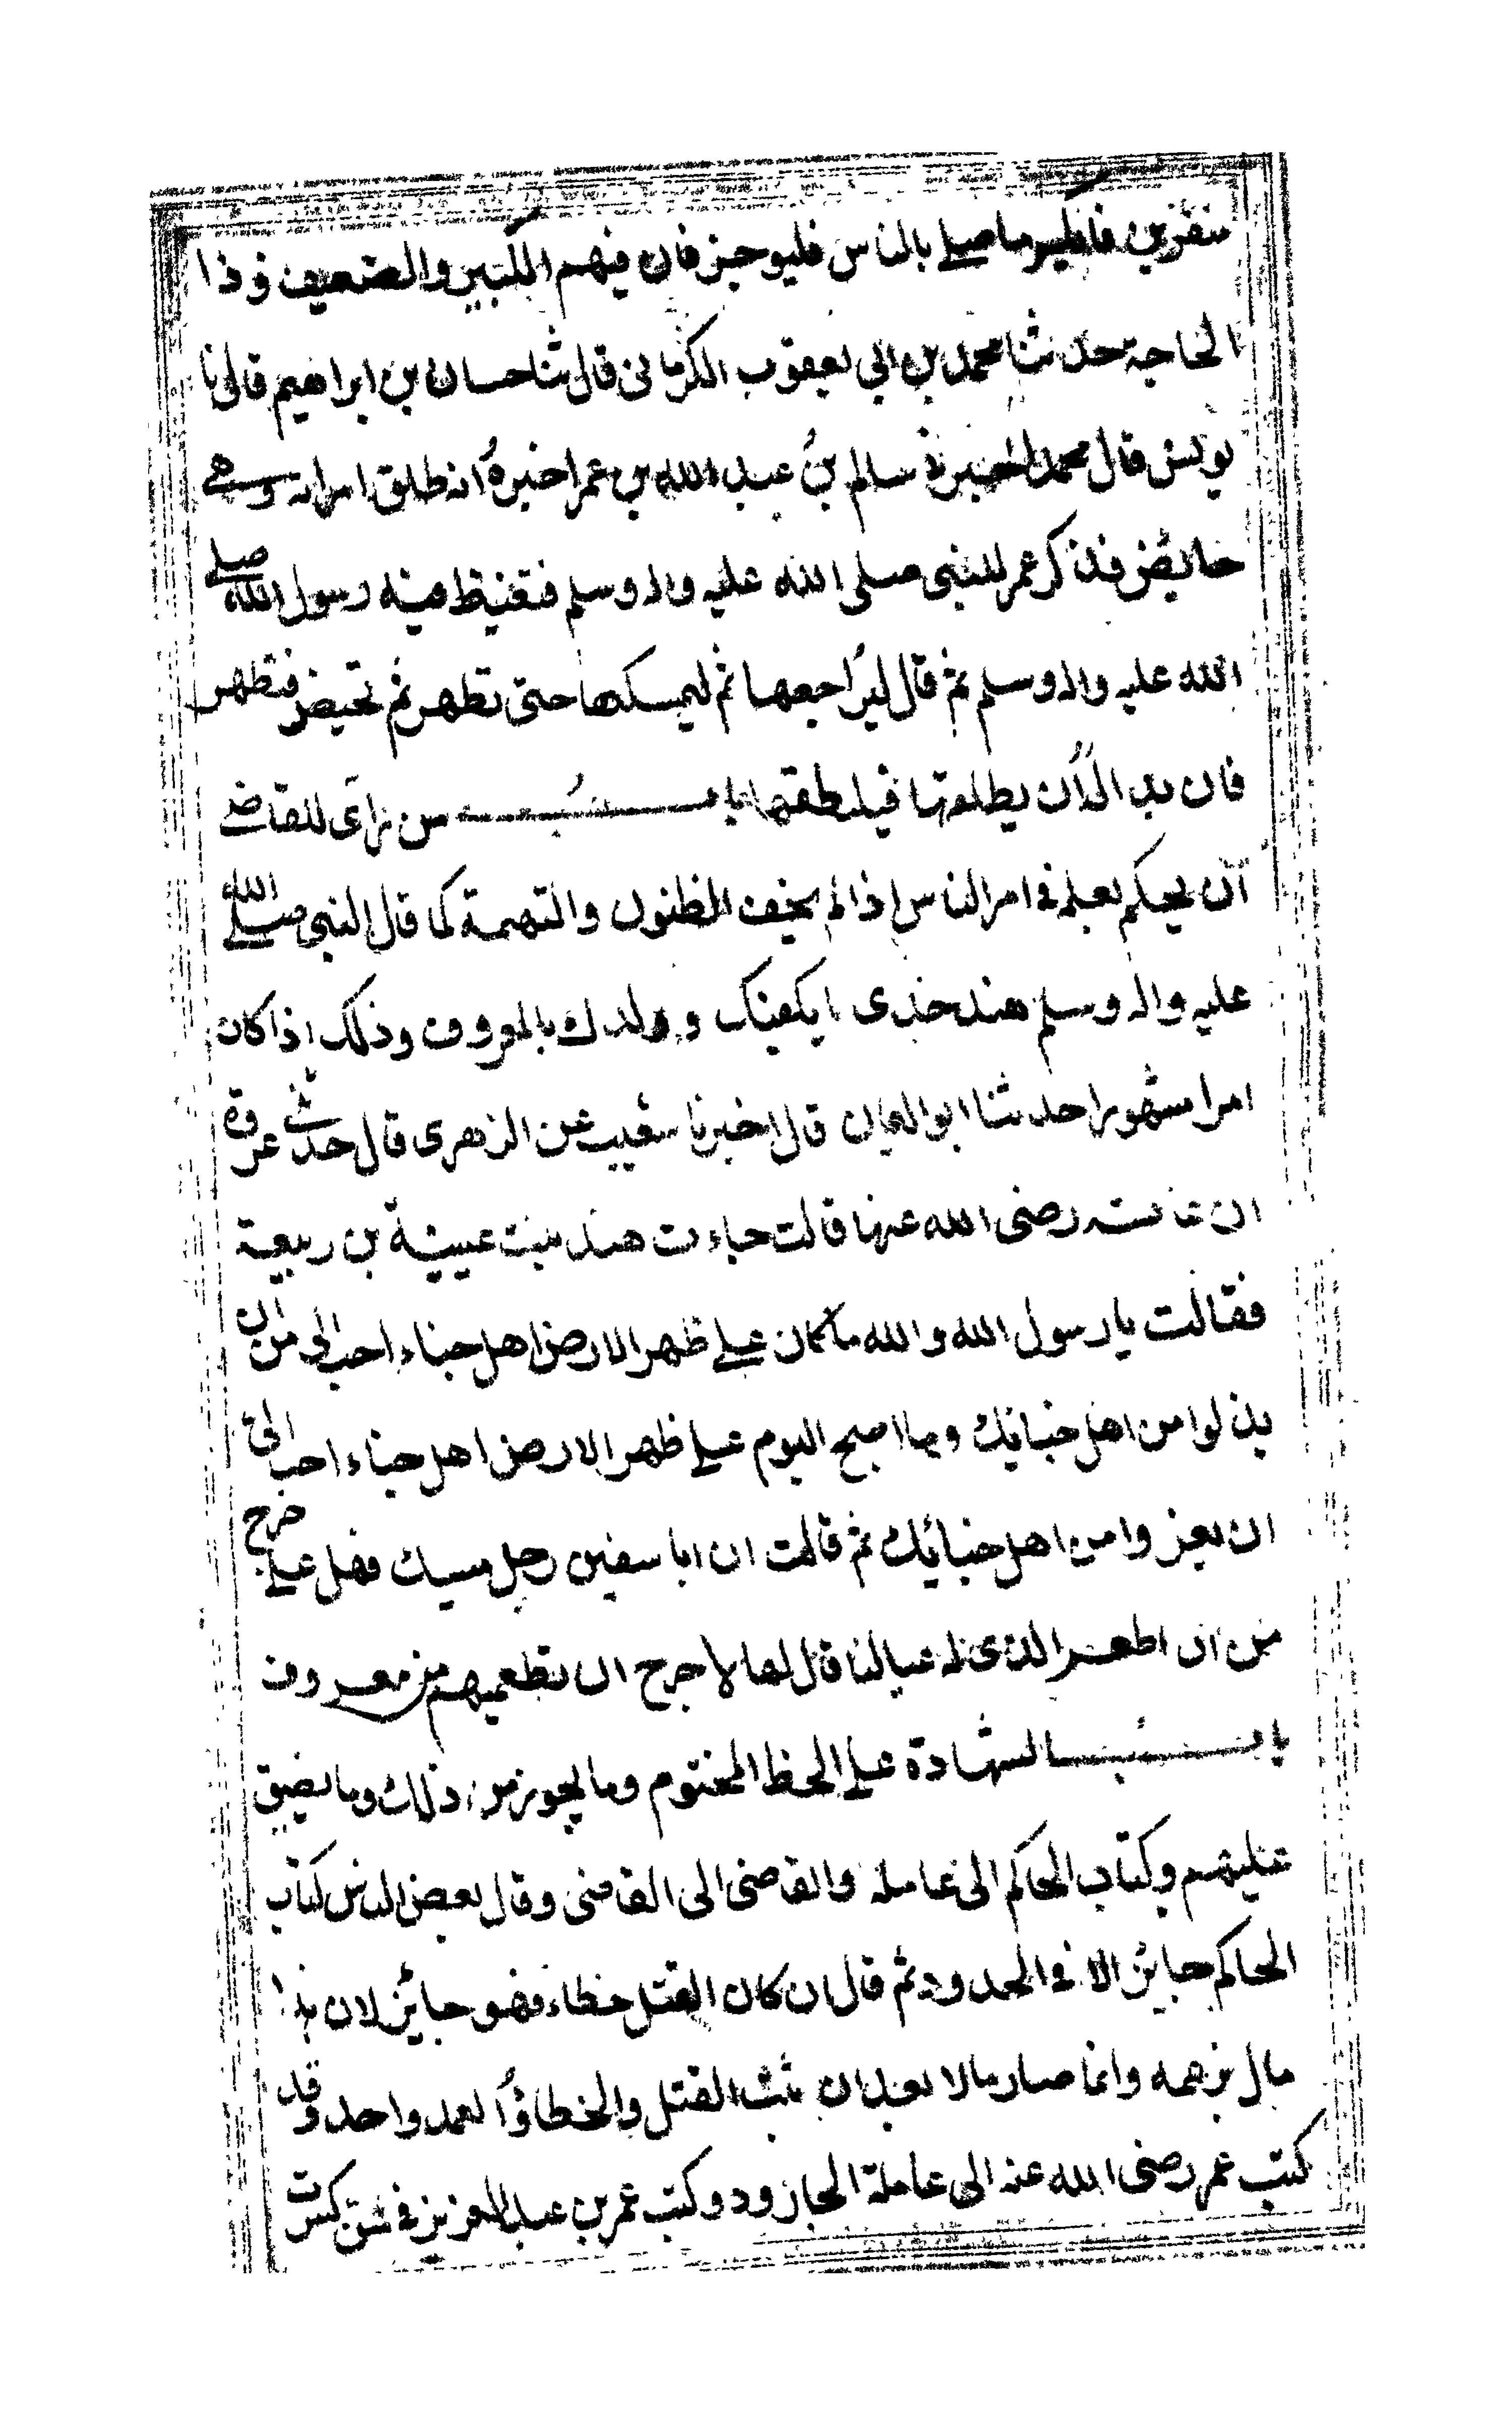 منفرين فايكم ما صلى بالناس فليوجز فان فيهم الكبير والضعيف وذا
الحاجة حدثنا محمد بن ابي يعقوب الكرماني قال ثنا حسان بن ابراهيم قال نا
يونس قال محمد اخبرني سالم بن عبد الله بن عمر اخبره انه طلق امراته وهي
حايض فذكر عمر للنبي صلى الله عليه واله وسلم فتغيظ فيه رسول الله صلى
الله عليه واله وسلم ثم قال ليراجعها ثم ليمسكها حتى تطهر ثم تحيض فتطهر
فان بدا له ان يطلقها فيلطقها باب من راى للقاضي
ان يحكم بعلمه في امر الناس اذا لم يخف الظنون والتهمة كما قال النبي صلى الله
عليه واله وسلم هند خذى ما يكفيك وولدك بالمعروف وذلك اذا كان
امرا مشهورا حدثنا ابو اليمان قال اخبرنا شعيب عن الزهرى قال حدثني عروة
ان عائشه رضى الله عنها قالت جاءت هند بنت عيينة بن ربيعة
فقالت يا رسول الله والله ما كان على ظهر الارض اهل خباء احب الي من ان
يذلوا من اهل خبائك وما اصبح اليوم على ظهر الارض اهل خباء احب الي
ان يعزوا من اهل خبائك ثم قالت ان ابا سفين رجل مسيك فهل علي خرج
من ان اطعم الذى له عيالنا قال لها لا حرج ان تطعميهم من معروف
باب الشهادة على الخط المختوم وما يجوز من ذلك وما يضيق
عليهم وكتاب الحاكم الى عامله والقاضى الى القاضى وقال بعض الناس كتاب
الحاكم جايز الا في الحدود ثم قال ان كان القتل خطاء فهو جايز لان هذا
مال بزعمه وانما صار مالا بعد ان ثبت القتل والخطاؤ العمد واحد وقد
كتب عمر رضى الله عنه الى عاملة الجارود وكتب عمر بن عبد العزيز في سن كسرت